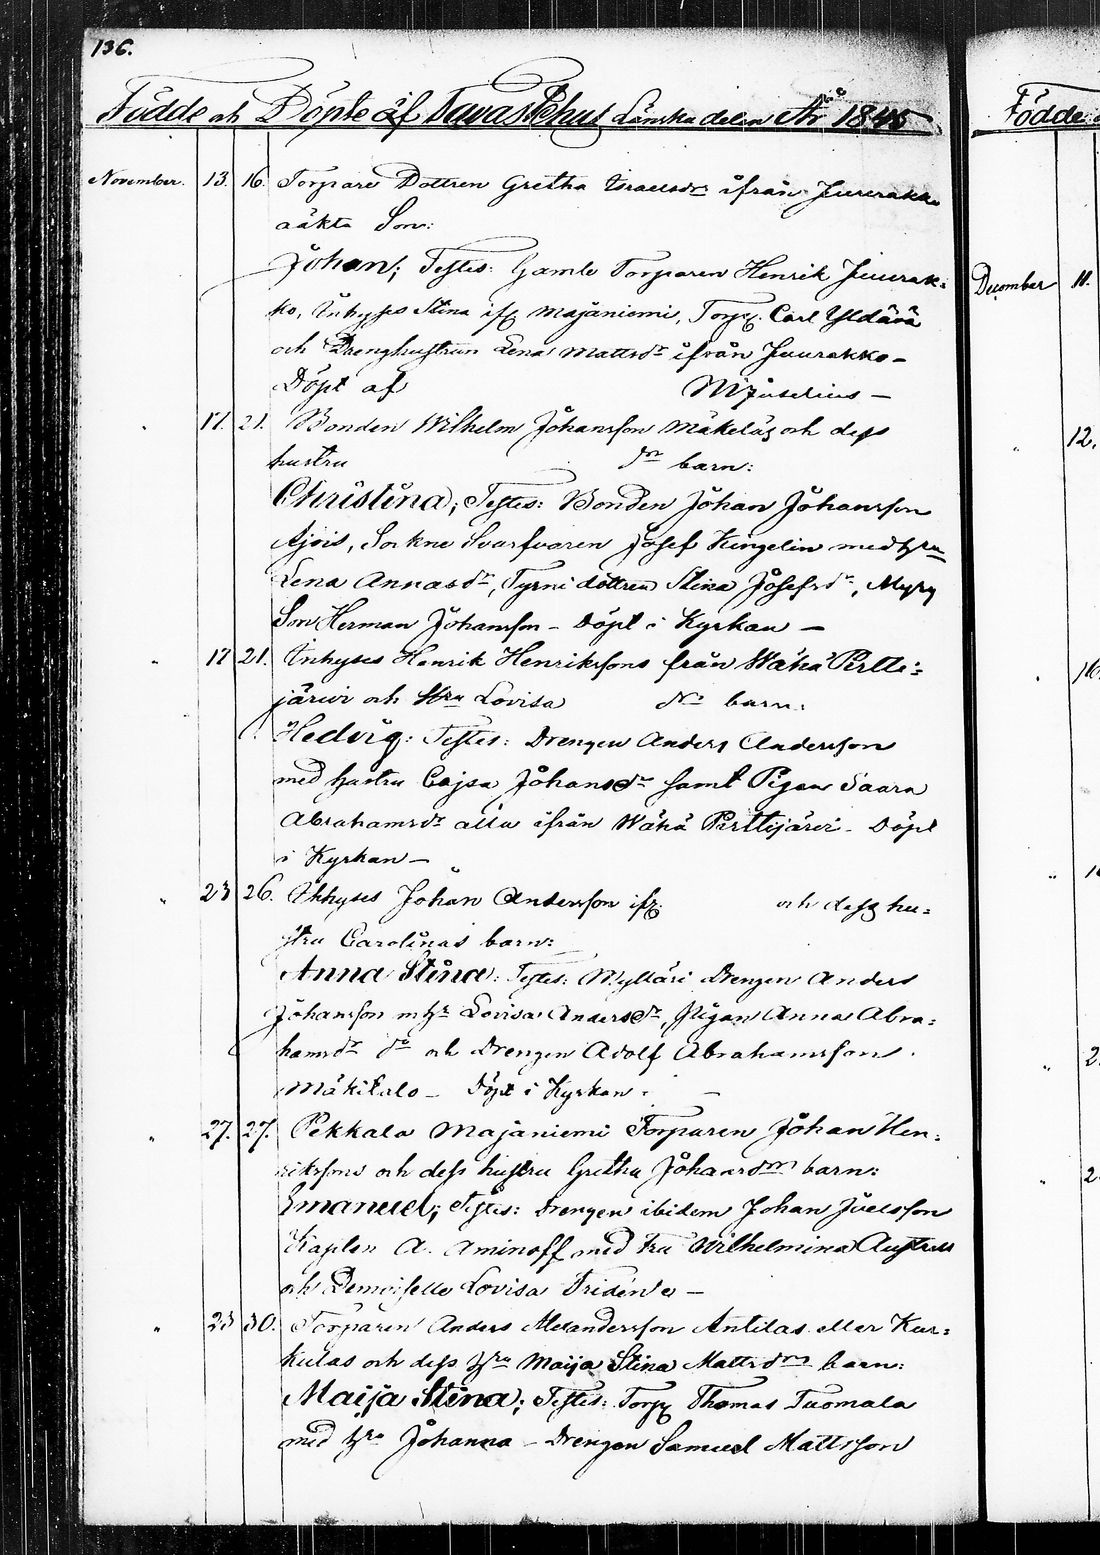 136.
Födde och Döpte af Tavastehus Länska delen År 1845
November. 13. 16. Torpare Dottren Gretha Israelsdr ifrån Juurakko
oäkta Son:
Johan; Testes: Gamle Torparen Henrik Juurak-
ko, Inhyses Stina ifr Majaniemi, Torp. Carl Yldävä
och Drenghustrun Lena Mattsdr ifrån Juurakko –
Döpt af
17. 21. Bonden Wilhelm Johansson Mäkeläs och dess
hustru dr barn:
Christina; Testes: Bonden Johan Johansson
Ajois, Sockne Svarfvaren Josef Kingelin med hru
Lena Annasdr, Tyrni dottren Stina Josefsdr, Myry
Son Herman Johansson – Döpt i Kyrkan –
17 21. Inhyses Henrik Henrikssons från Wähä Pertte-
järwi och Hru Lovisa dr barn:
Hedvig: Testes: Drengen Anders Andersson
med hustru Cajsa Johansdr samt Pigan Saara
Abrahamsdr alla ifrån Wähä Perttijärvi – Döpt
i Kyrkan –
23 26. Inhyses Johan Andersson ifr. och dess hu-
stru Carolinas barn:
Anna Stina: Testes: Mylläri Drengen Anders
Johansson m hr Lovisa Andersdr, Pigan Anna Abra-
hamsdr do och Drengen Adolf Abrahamsson.
Mäkitalo – Döpt i Kyrkan
27. 27. Pekkala Majaniemi Torparen Johan Hen-
rikssons och dess hustru Gretha Johansdrs barn:
Emanuel; Testes: Drengen ibidem Johan Joelsson
Kaplan A. Aminoff med fru Wilhelmina
och Demoiselle Lovisa
23 30. Torparen Anders Alexandersson Antilas eller Kur-
kulas och dess hru Maija Stina Mattsdrs barn:
Maija Stina; Testes: Torp Thomas Tuomala
med hru Johanna – Drengen Samuel Mattsson
Födde
December 11.
12.
16.